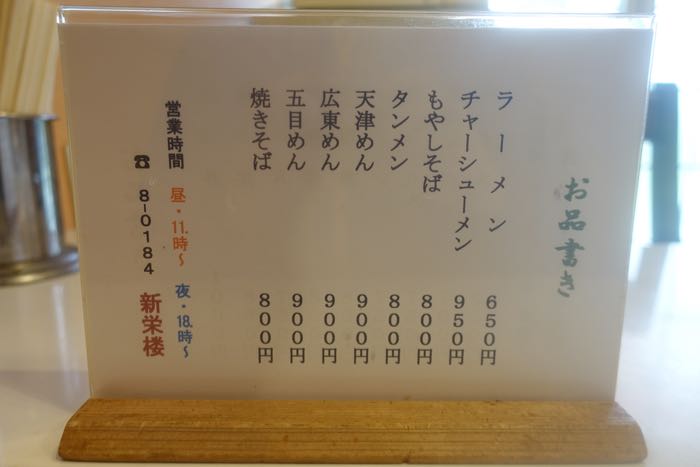 お品書き
ラーメン 650円
チャーシューメン 950円
もやしそば 800円
タンメン 800円
天津めん 900円
広東めん 900円
五目めん 900円
焼きそば 800円
営業時間 昼・11.時~ 夜・18.時~
☎ 8-0184 新栄楼